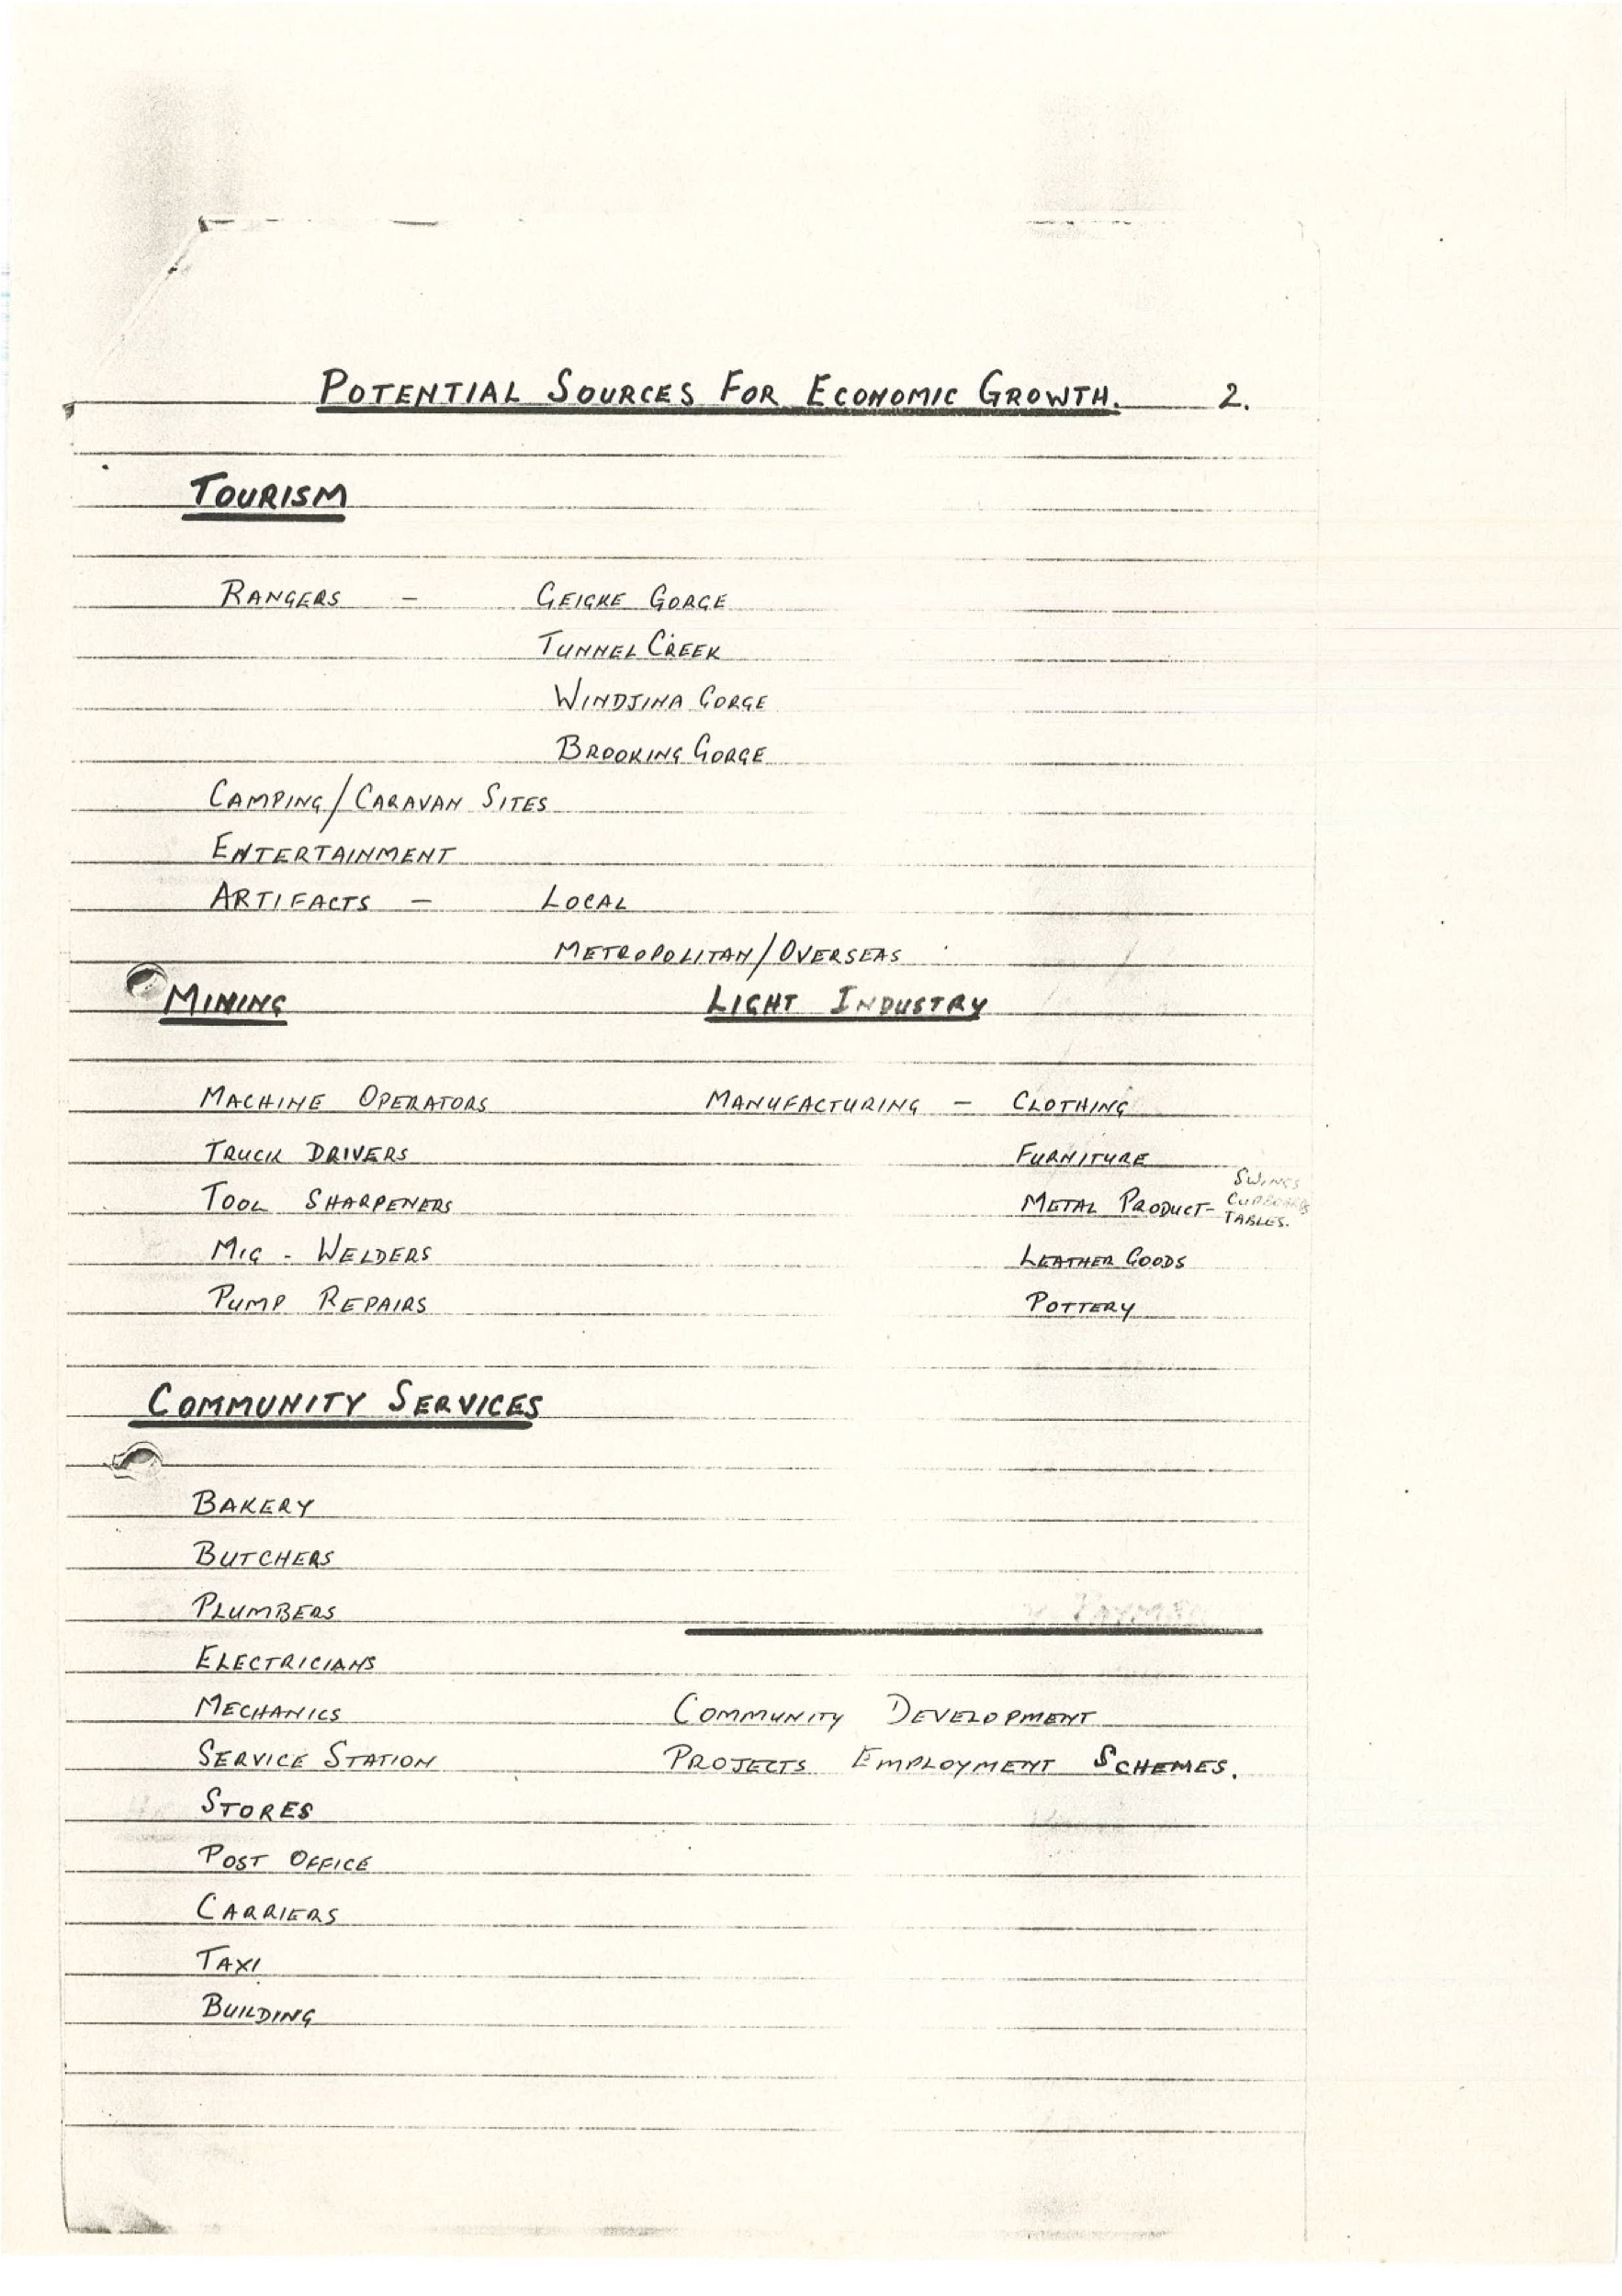 POTENTIAL SOURCES FOR ECONOMIC GROWTH. 2.
TOURISM
RANGERS - GEIGKE GORGE
TUNNEL CREEK
WINDJINA GORGE
BROOKING GORGE
CAMPING/CARAVAN SITES
ENTERTAINMENT
ARTIFACTS - LOCAL
METROPOLITAN/OVERSEAS
MINING LIGHT INDUSTRY
MACHINE OPERATORS MANUFACTURING - CLOTHING
TRUCK DRIVERS FURNITURE
SWINGS
TOOL SHARPENERS METAL PRODUCT- CUPBOARDS
TABLES.
MIG - WELDERS LEATHER GOODS
PUMP REPAIRS POTTERY
COMMUNITY SERVICES
BAKERY
BUTCHERS
PLUMBERS
ELECTRICIANS
MECHANICS COMMUNITY DEVELOPMENT
SERVICE STATION PROJECTS EMPLOYMENT SCHEMES.
STORES
POST OFFICE
CARRIERS
TAXI
BUILDING